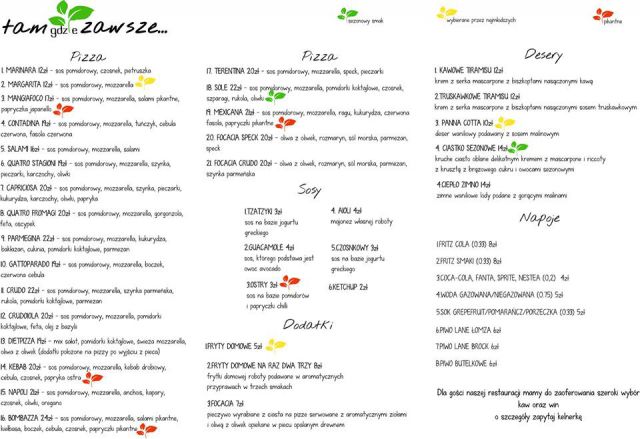 tam gdzie zawsze...
sezonowy smak
wybierane przez najmłodszych
pikantne
Pizza
1. MARINARA 12zł - sos pomidorowy, czosnek, pietruszka
2. MARGARITA 12zł - sos pomidorowy, mozzarella
3. MANGIAFOCO 17zł - sos pomidorowy, mozzarella, salami pikantne,
papryczka japanello
4. CONTADINA 19zł - sos pomidorowy, mozzarella, tuńczyk, cebula
czerwona, fasola czerwona
5. SALAMI 16zł - sos pomidorowy, mozzarella, salami
6. QUATRO STAGIONI 19zł - sos pomidorowy, mozzarella, szynka,
pieczarki, karczochy, oliwki
7. CAPRICIOSA 20zł - sos pomidorowy, mozzarella, szynka, pieczarki,
kukurydza, karczochy, oliwki, papryka
8. QUATRO FROMAGI 20zł - sos pomidorowy, mozzarella, gorgonzola,
feta, oscypek
9. PARMEGINA 22zł - sos pomidorowy, mozzarella, kukurydza,
bakłażan, cukinia, pomidorki koktajlowe, parmezan
10. GATTOPARADO 19zł - sos pomidorowy, mozzarella, boczek,
czerwona cebula
11. CRUDO 22zł - sos pomidorowy, mozzarella, szynka parmeńska,
rukola, pomidorki koktajlowe, parmezan
12. CRUDOIOLA 20zł - sos pomidorowy, mozzarella, pomidorki
koktajlowe, feta, olej z bazylii
13. DIETPIZZA 19zł - mix sałat, pomidorki koktajlowe, świeża mozzarella,
oliwa z oliwek (dodatki położone na pizzy po wyjściu z pieca)
14. KEBAB 20zł - sos pomidorowy, mozzarella, kebab drobiowy,
cebula, czosnek, papryka ostra
15. NAPOLI 21zł - sos pomidorowy, mozzarella, anchois, kapary,
czosnek, oliwki, oregano
16. BOMBAZZA 24zł - sos pomidorowy, mozzarella, salami pikantne,
kiełbasa, boczek, cebula, czosnek, papryczki pikantne
Pizza
17. TERENTINA 20zł - sos pomidorowy, mozzarella, speck, pieczarki
18. SOLE 22zł - sos pomidorowy, mozzarella, pomidorki koktajlowe, czosnek,
szparagi, rukola, oliwki
19. MEXICANA 21zł - sos pomidorowy, mozzarella, ragu, kukurydza, czerwona
fasola, papryczki pikantne
20. FOCACIA SPECK 20zł - oliwa z oliwek, rozmaryn, sól morska, parmezan,
speck
21. FOCACIA CRUDO 20zł - oliwa z oliwek, rozmaryn, sól morska, parmezan,
szynka parmeńska
Sosy
1.TZATZYKI 3zł
sos na bazie jogurtu
greckiego
2.GUACAMOLE 4zł
sos, którego podstawą jest
owoc avocado
3.OSTRY 3zł
sos na bazie pomidorów
i papryczki chilli
4. AIOLI 4zł
majonez własnej roboty
5.CZOSNKOWY 3zł
sos na bazie jogurtu
greckiego
6.KETCHUP 2zł
Dodatki
1.FRYTY DOMOWE 5zł
2.FRYTY DOMOWE NA RAZ DWA TRZY 8zł
frytki domowej roboty podawane w aromatycznych
przyprawach w trzech smakach
3.FOCACIA 7zł
pieczywo wyrabiane z ciasta na pizze serwowane z aromatycznymi ziołami
i oliwą z oliwek opiekane w piecu opalanym drewnem
Desery
1. KAWOWE TIRAMISU 12zł
krem z serka mascarpone z biszkoptami nasączonymi kawą
2.TRUSKAWKOWE TIRAMISU 12zł
krem z serka mascarpone z biszkoptami nasączonymi sosem truskawkowym
3. PANNA COTTA 10zł
deser waniliowy podawany z sosem malinowym
4. CIASTKO SEZONOWE 14zł
kruche ciasto oblane delikatnym kremem z mascarpone i riccoty
z kruszthą z brązowego cukru i owocami sezonowymi
4.CIEPŁO ZIMNO 14zł
zimne waniliowe lody podane z gorącymi malinami
Napoje
1.FRITZ COLA (0.33) 8zł
2.FRITZ SMAKI (0.33) 8zł
3.COCA-COLA, FANTA, SPRITE, NESTEA (0,2) 4zł
4.WODA GAZOWANA/NIEGAZOWANA (0.75) 5zł
5.SOK GREPEFRUIT/POMARAŃCZ/PORZECZKA (0.33) 5zł
6.PIWO LANE ŁOMŻA 6zł
7.PIWO LANE BROCK 6zł
8.PIWO BUTELKOWE 6zł
Dla gości naszej restauracji mamy do zaoferowania szeroki wybór
kaw oraz win
o szczegóły zapytaj kelnerkę